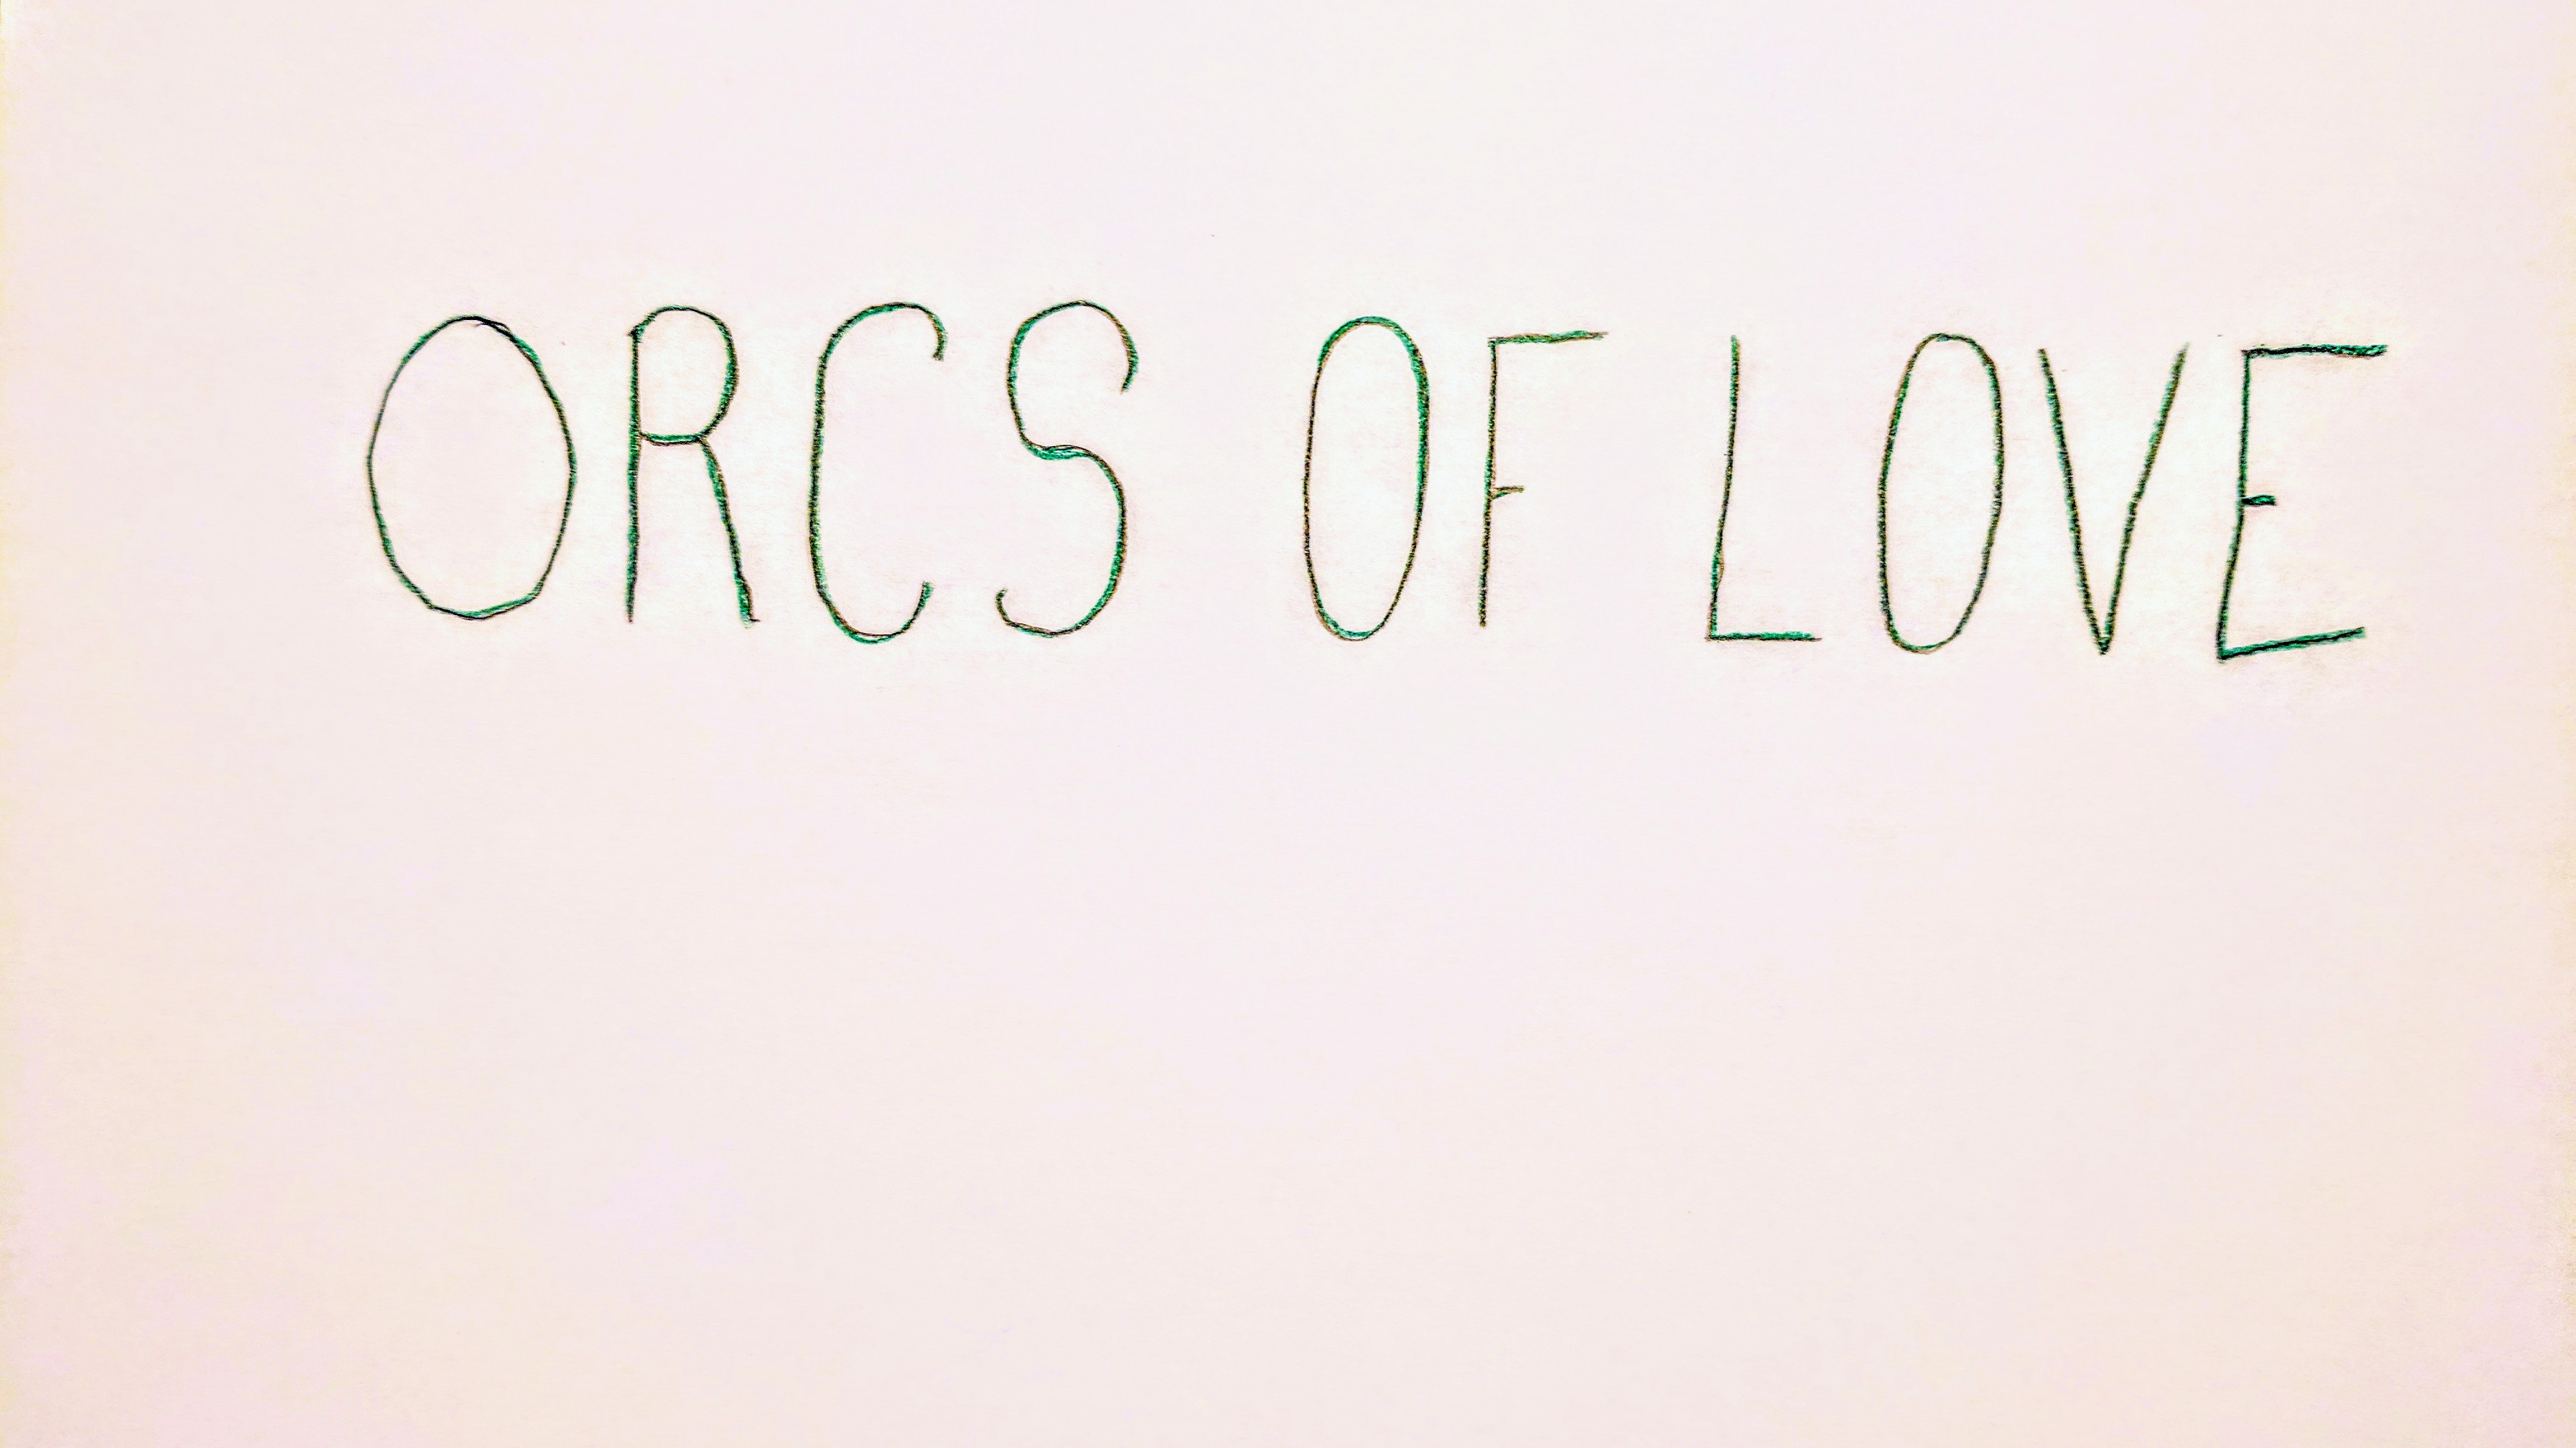 ORCS OF LOVE